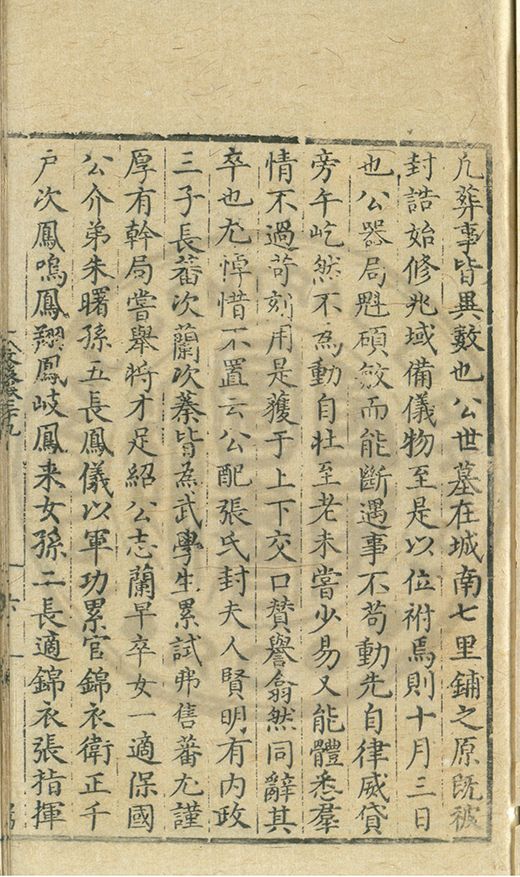 凡葬事皆異數也公世墓在城南七里鋪之原既被
封誥始修兆域備儀物至是以位祔焉則十月三日
也公器局魁碩敏而能斷遇事不苟動先自律威貸
旁午屹然不為動自壯至老未嘗少易又能體悉羣
情不過苛刻用是獲于上下交口贊譽翕然同辭其
卒也尤悼惜不置云公配張氏封夫人賢明有內政
三子長蕃次蘭次蓁皆為武學生累試弗售蕃尤謹
厚有幹局嘗舉將才足紹公志蘭早卒女一適保國
公介弟朱曙孫五長鳳儀以軍功累官錦衣衛正千
戶次鳳鳴鳳翔鳳岐鳳来女孫二長適錦衣張指揮